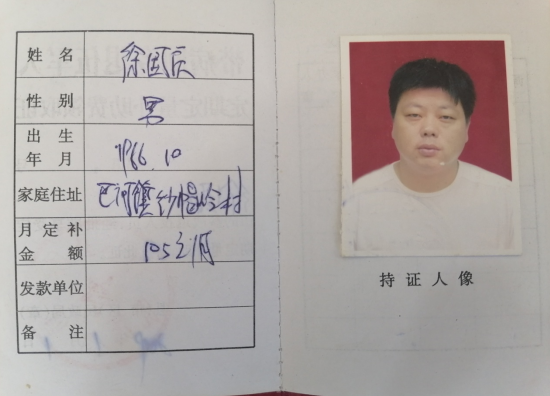 姓名 徐国辰
性别 男
出生
年月 1966.10
家庭住址 巴河镇纱帽岭村
月定补
金额 105元/月
发款单位
备注
持证人像